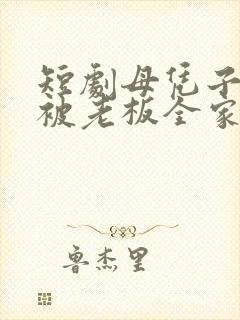 短劇母凭子
被老板全家
鲁杰里